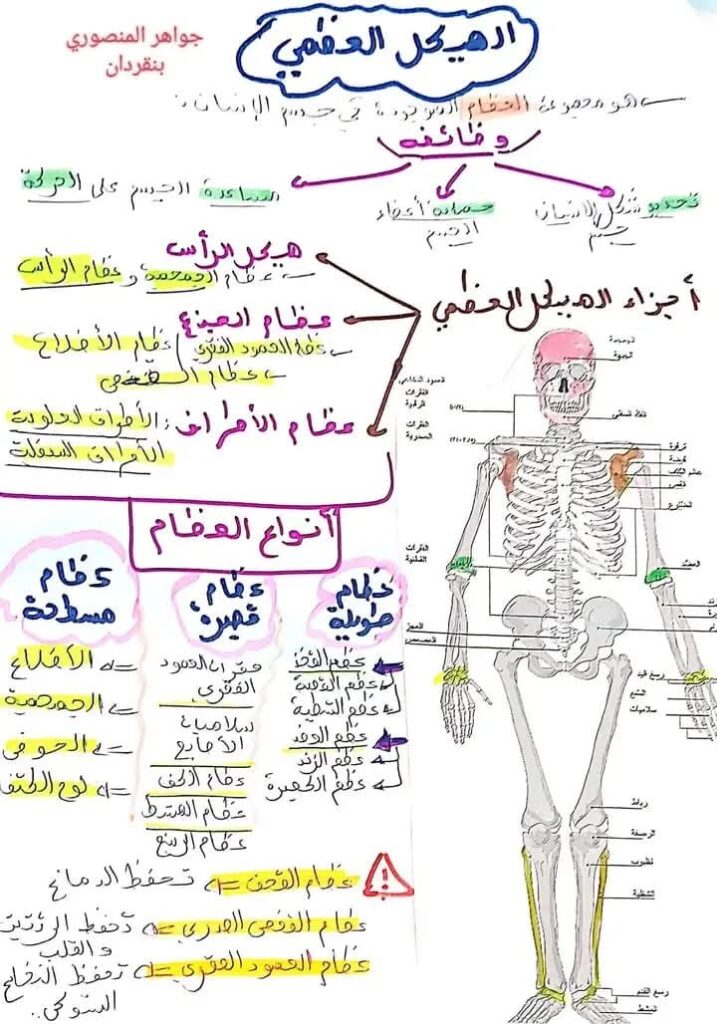 جواهر المنصوري
بنقردان
الهيكل العظمي
هو مجموعة العظام الموجودة في جسم الإنسان:
وظائفه
تحديد شكل الإنسان
جسم
حماية أعضاء
الجسم
مساعدة الجسم على الحركة
أجزاء الهيكل العظمي
هيكل الرأس
عظام الجمجمة و عظام الرأس
عظام الجذع
العمود الفقري / عظام الأضلاع
عظام
عظام الأطراف: الأطراف العلوية
الأطراف السفلية
أنواع العظام
عظام
طويلة
عظم الفخذ
عظم القصبة
عظم الشظية
عظم العضد
عظم الزند
عظم الكعبرة
عظام
قصيرة
فقرات العمود
الفقري
سلاميات
الأصابع
عظام الكف
عظام المشط
عظام الرسغ
عظام
مسطحة
الأضلاع
الجمجمة
الحوض
لوح الكتف
عظام القحف => تحفظ الدماغ
عظام القفص الصدري => تحفظ الرئتين
والقلب
عظام العمود الفقري => تحفظ النخاع
الشوكي..
الجمجمة
الجبهة
الفك السفلي
الفقرات
الرقبية
الفقرات
الصدرية
ترقوة
الفقرات
القطنية
العضد
العجز
العصعص
رسغ اليد
المشع
سلاميات
رباط
الرضفة
ظنبوب
الشظية
رسغ القدم
المشط